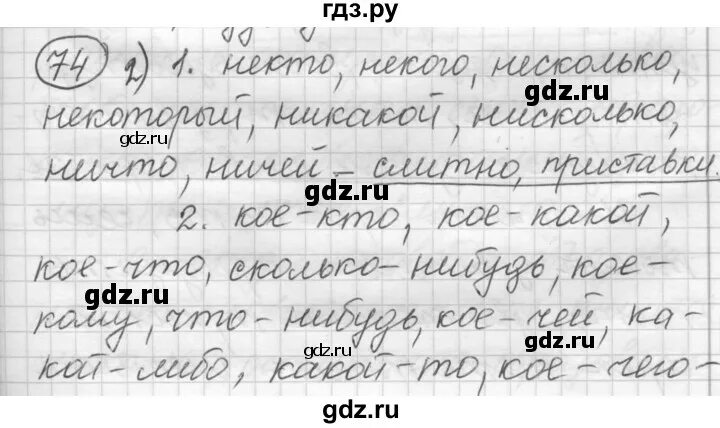 гдз.ру
74 2) 1. некто, некого, несколько,
gdz.ru
некоторый, никакой, нисколько,
gdz.ru
gdz.ru
ничто, ничей – слитно, приставки.
gdz.ru
2. кое-кто, кое-какой,
gdz.ru
кое-что, сколько-нибудь, кое-
gdz.ru
кому, что-нибудь, кое-чей, ка-
gdz.ru
gdz.ru
кой-либо, какой-то, кое-чего-
gdz.ru